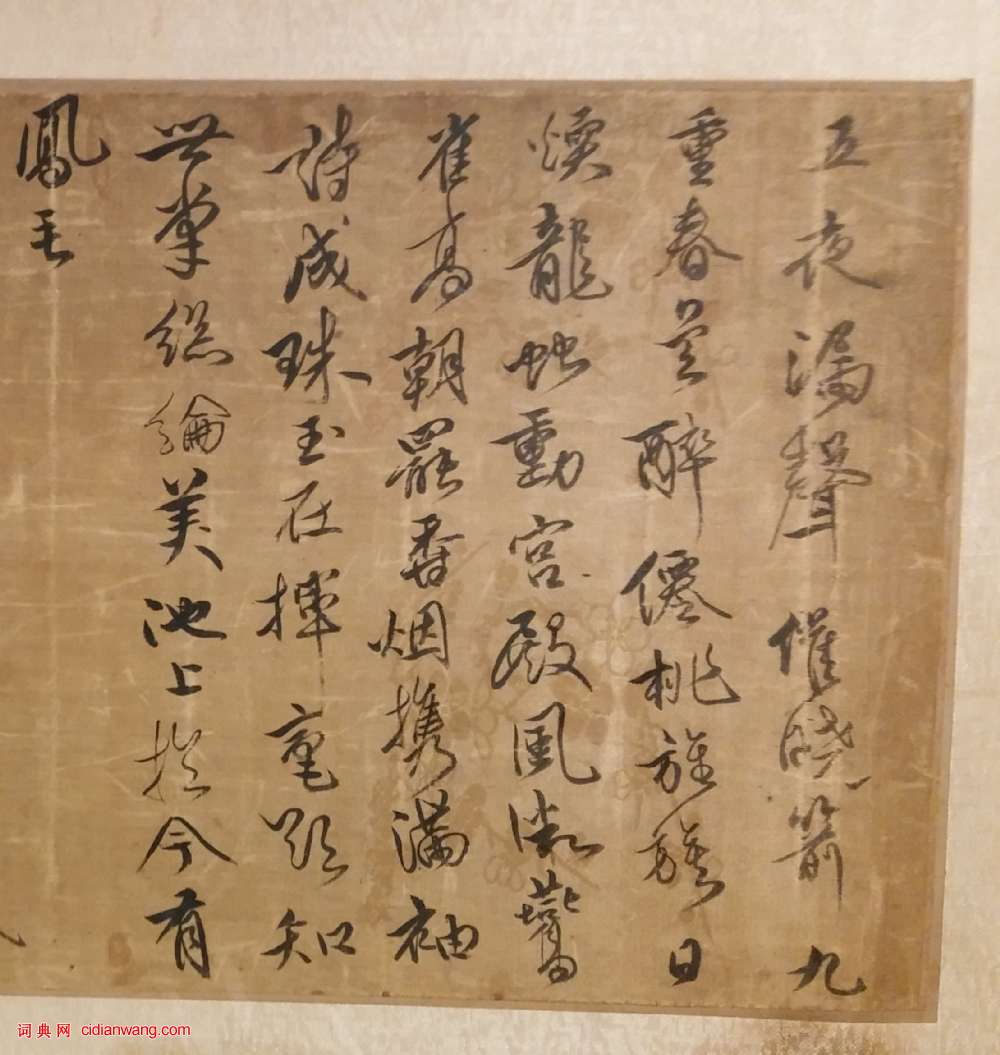 五夜漏聲催曉箭九
重春色醉僊桃旌旗日
煗龍虵動宮殿風微鷰
雀高朝罷香烟携滿袖
詩成珠玉在揮毫欲知
世掌絲綸美池上於今有
鳳毛
词典网 cidianwang.com